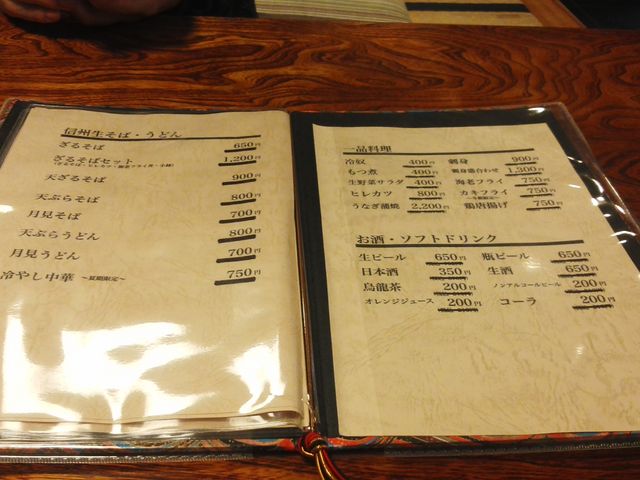 信州生そば・うどん
ざるそば 650円
ざるそばセット 1,200円
天ざるそば 900円
天ぷらそば 800円
月見そば 700円
天ぷらうどん 800円
月見うどん 700円
冷やし中華 ～夏期限定～ 750円
一品料理
冷奴 400円 刺身 900円
もつ煮 400円 刺身盛合わせ 1,300円
生野菜サラダ 400円 海老フライ 750円
ヒレカツ 800円 カキフライ 750円
～冬期限定～
うなぎ蒲焼 2,200円 鶏唐揚げ 750円
お酒・ソフトドリンク
生ビール 650円 瓶ビール 650円
日本酒 350円 生酒 650円
烏龍茶 200円 ノンアルコールビール 200円
オレンジジュース 200円 コーラ 200円